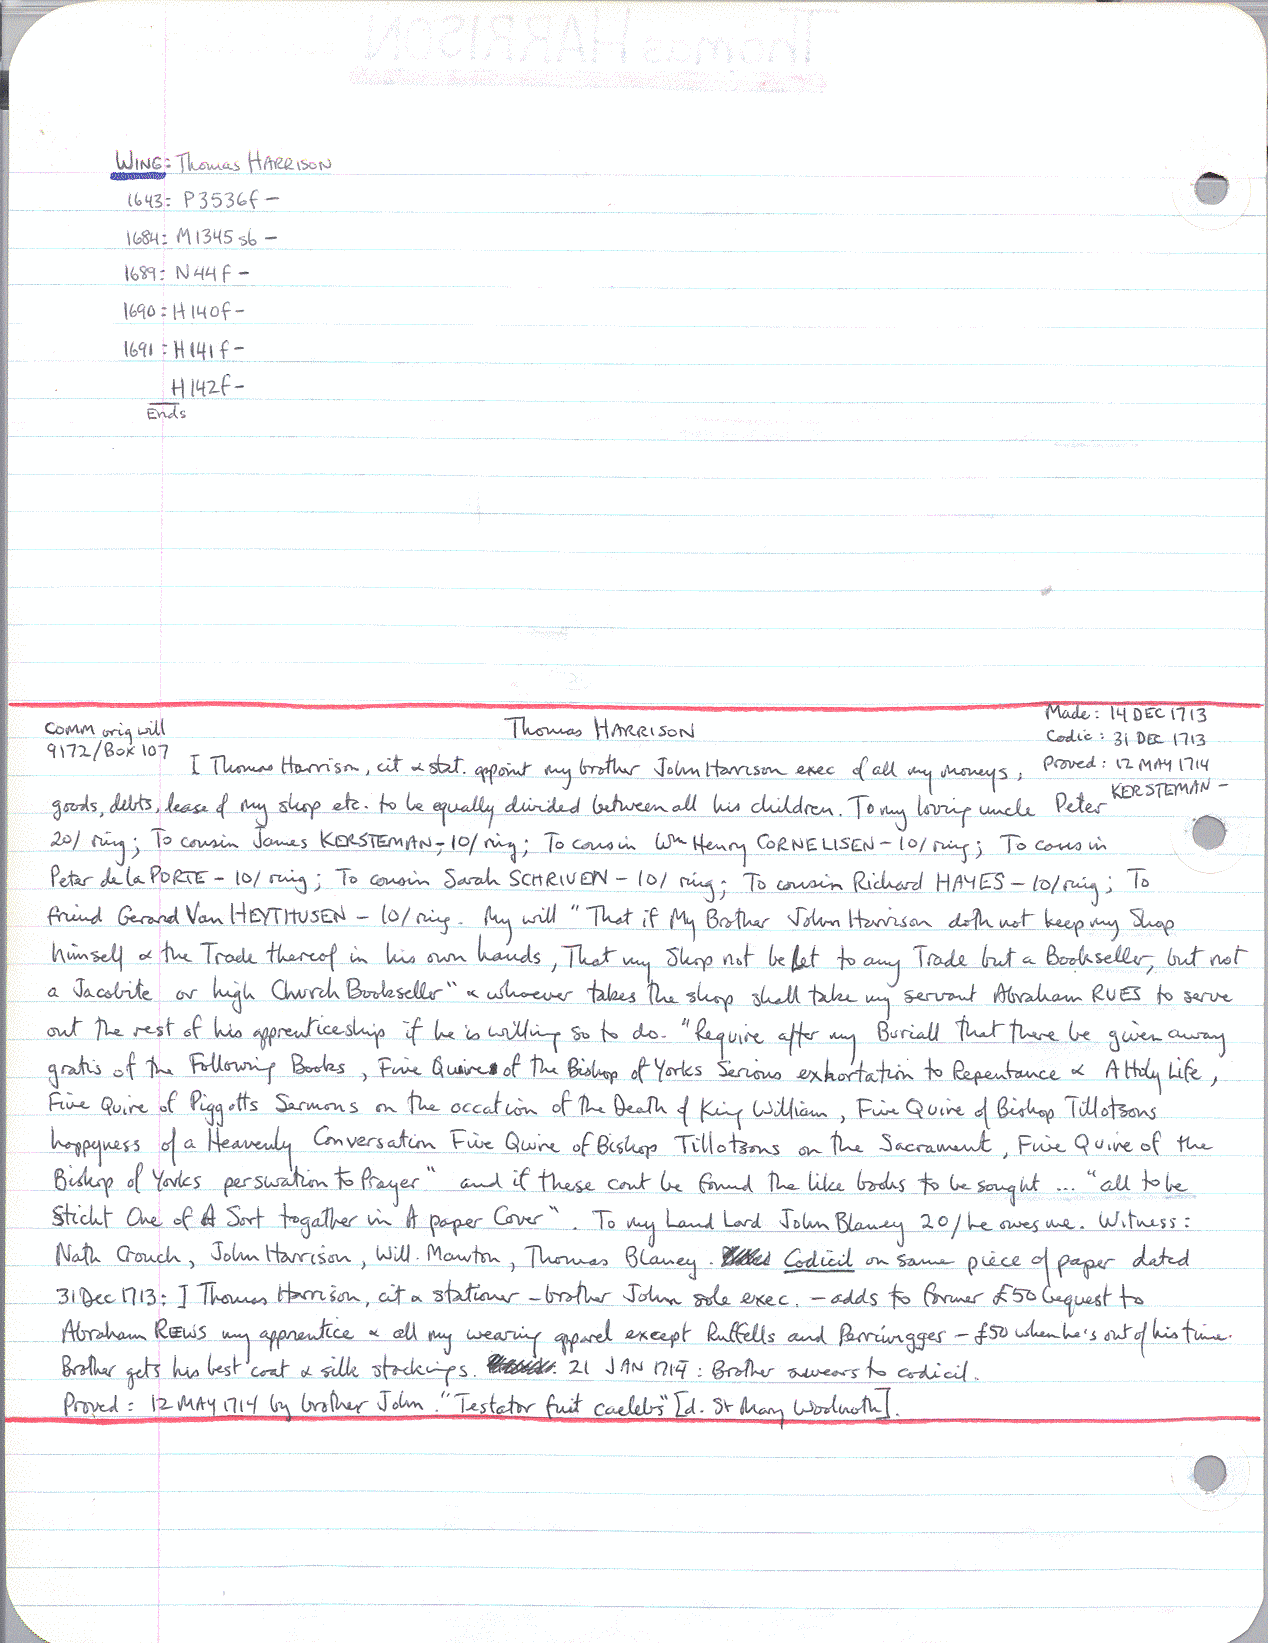 WING: Thomas HARRISON
1643: P3536f –
1684: M1345sb –
1689: N44f –
1690: H140f –
1691: H141f –
H142f –
Ends
Comm orig will
9172/Box 107
Thomas HARRISON
Made: 14 DEC 1713
Codic: 31 DEC 1713
Proved: 12 MAY 1714
I Thomas Harrison, cit & stat. appoint my brother John Harrison exec of all my moneys,
goods, debts, lease of my shop etc. to be equally divided between all his children. To my loving uncle Peter KERSTEMAN –
20/ ring; To cousin James KERSTEMAN – 10/ ring; To cousin Wm Henry CORNELISEN – 10/ ring; To cousin
Peter de la PORTE – 10/ ring; To cousin Sarah SCHRIVEN – 10/ ring; To cousin Richard HAYES – 10/ ring; To
friend Gerard Van HEYTHUSEN – 10/ ring. My will "That if My Brother John Harrison doth not keep my Shop
himself & the Trade thereof in his own hands, That my Shop not be Let to any Trade but a Bookseller, but not
a Jacobite or high Church Bookseller" & whoever takes the shop shall take my servant Abraham RUES to serve
out the rest of his apprenticeship if he is willing so to do. "Require after my Buriall that there be given away
gratis of the Following Books, Five Quire of the Bishop of Yorks Serious exhortation to Repentance & A Holy Life,
Five Quire of Piggotts Sermons on the occation of the Death of King William, Five Quire of Bishop Tillotsons
happyness of a Heavenly Conversation Five Quire of Bishop Tillotsons on the Sacrament, Five Quire of the
Bishop of Yorks perswation to Prayer" and if these cant be found the like books to be sought ... "all to be
Sticht One of A Sort togather in A paper Cover". To my Land Lord John Blaney 20/ he owes me. Witness:
Nath Crouch, John Harrison, Will. Mawton, Thomas Blaney. Codicil on same piece of paper dated
31 Dec 1713: I Thomas Harrison, cit & stationer – brother John sole exec. – adds to former £50 bequest to
Abraham REWS my apprentice & all my wearing apparel except Ruffells and Perriwgger – £50 when he's out of his time.
Brother gets his best coat & silk stockings. 21 JAN 1714: Brother swears to codicil.
Proved: 12 MAY 1714 by brother John. "Testator fuit caelebs" [d. St Mary Woolnoth].